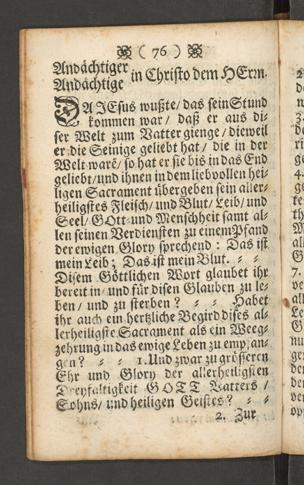 ( 76 )
Andächtiger
Andächtige in Christo dem HErrn.
DA JEsus wußte/ das sein Stund
kommen war/ daß er aus di-
ser Welt zum Vatter gienge/ dieweil
er die Seinige geliebt hat/ die in der
Welt warē/ so hat er sie bis in das End
geliebt/ und ihnen in dem liebvollen hei-
ligen Sacrament übergeben sein aller-
heiligstes Fleisch/ und Blut/ Leib/ und
Seel/ GOtt und Menschheit samt al-
len seinen Verdiensten zu einem Pfand
der ewigen Glory sprechend: Das ist
mein Leib; Das ist mein Blut. ⸗ ⸗
Disem Göttlichen Wort glaubet ihr
bereit in/ und für disen Glauben zu le-
ben/ und zu sterben? ⸗ ⸗ Habet
ihr auch ein hertzliche Begird dises al-
lerheiligste Sacrament als ein Weeg-
zehrung in das ewige Leben zu empfan-
gen? ⸗ ⸗ 1. Und zwar zu größeren
Ehr und Glory der allerheiligsten
Dreyfaltigkeit GOTT Vatters/
Sohns/ und heiligen Geistes? ⸗ ⸗
2. Zur